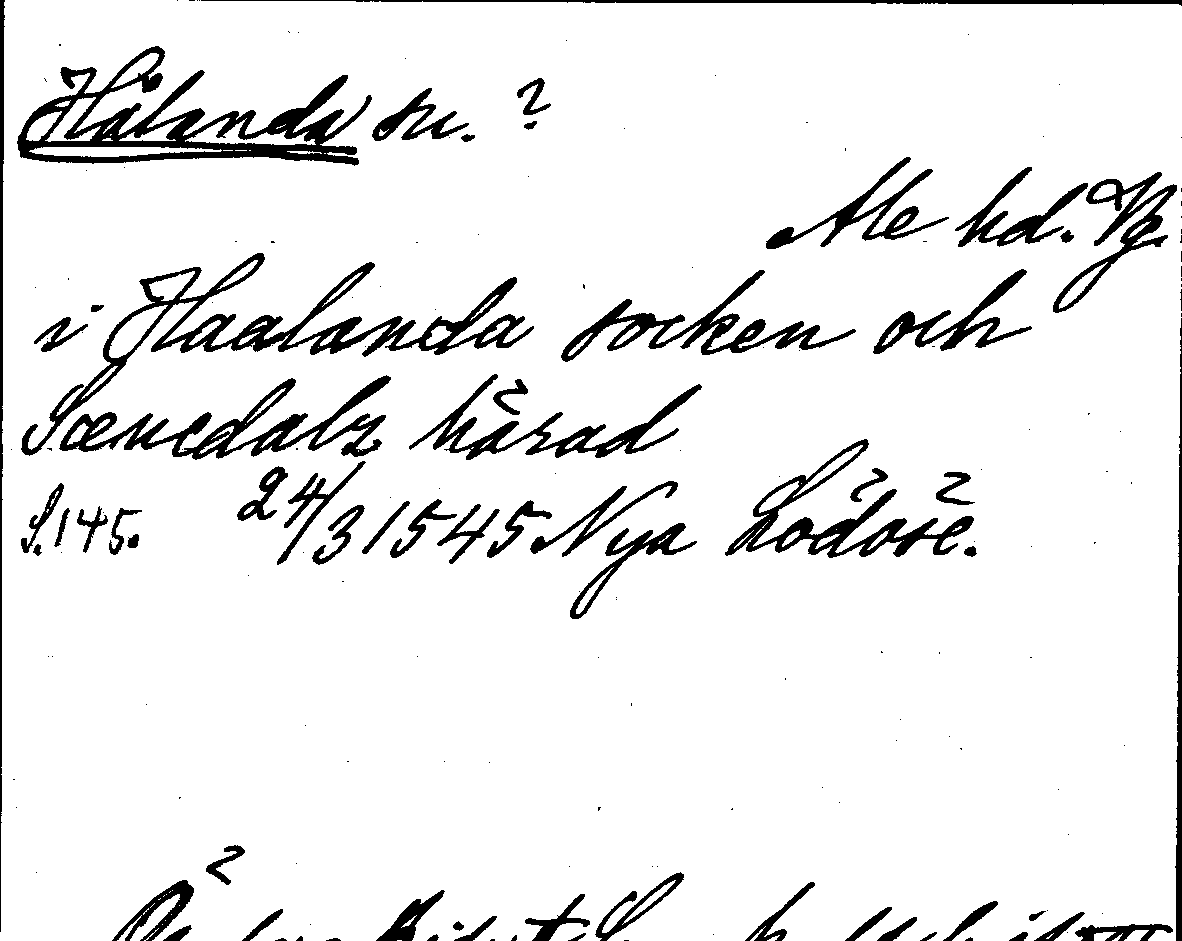 Hålanda sn. ?
Ale hd. Vg.
i Haalanda socken och
Sæncdalz härad
S. 145. 24/3 1545 Nya Lödöse.